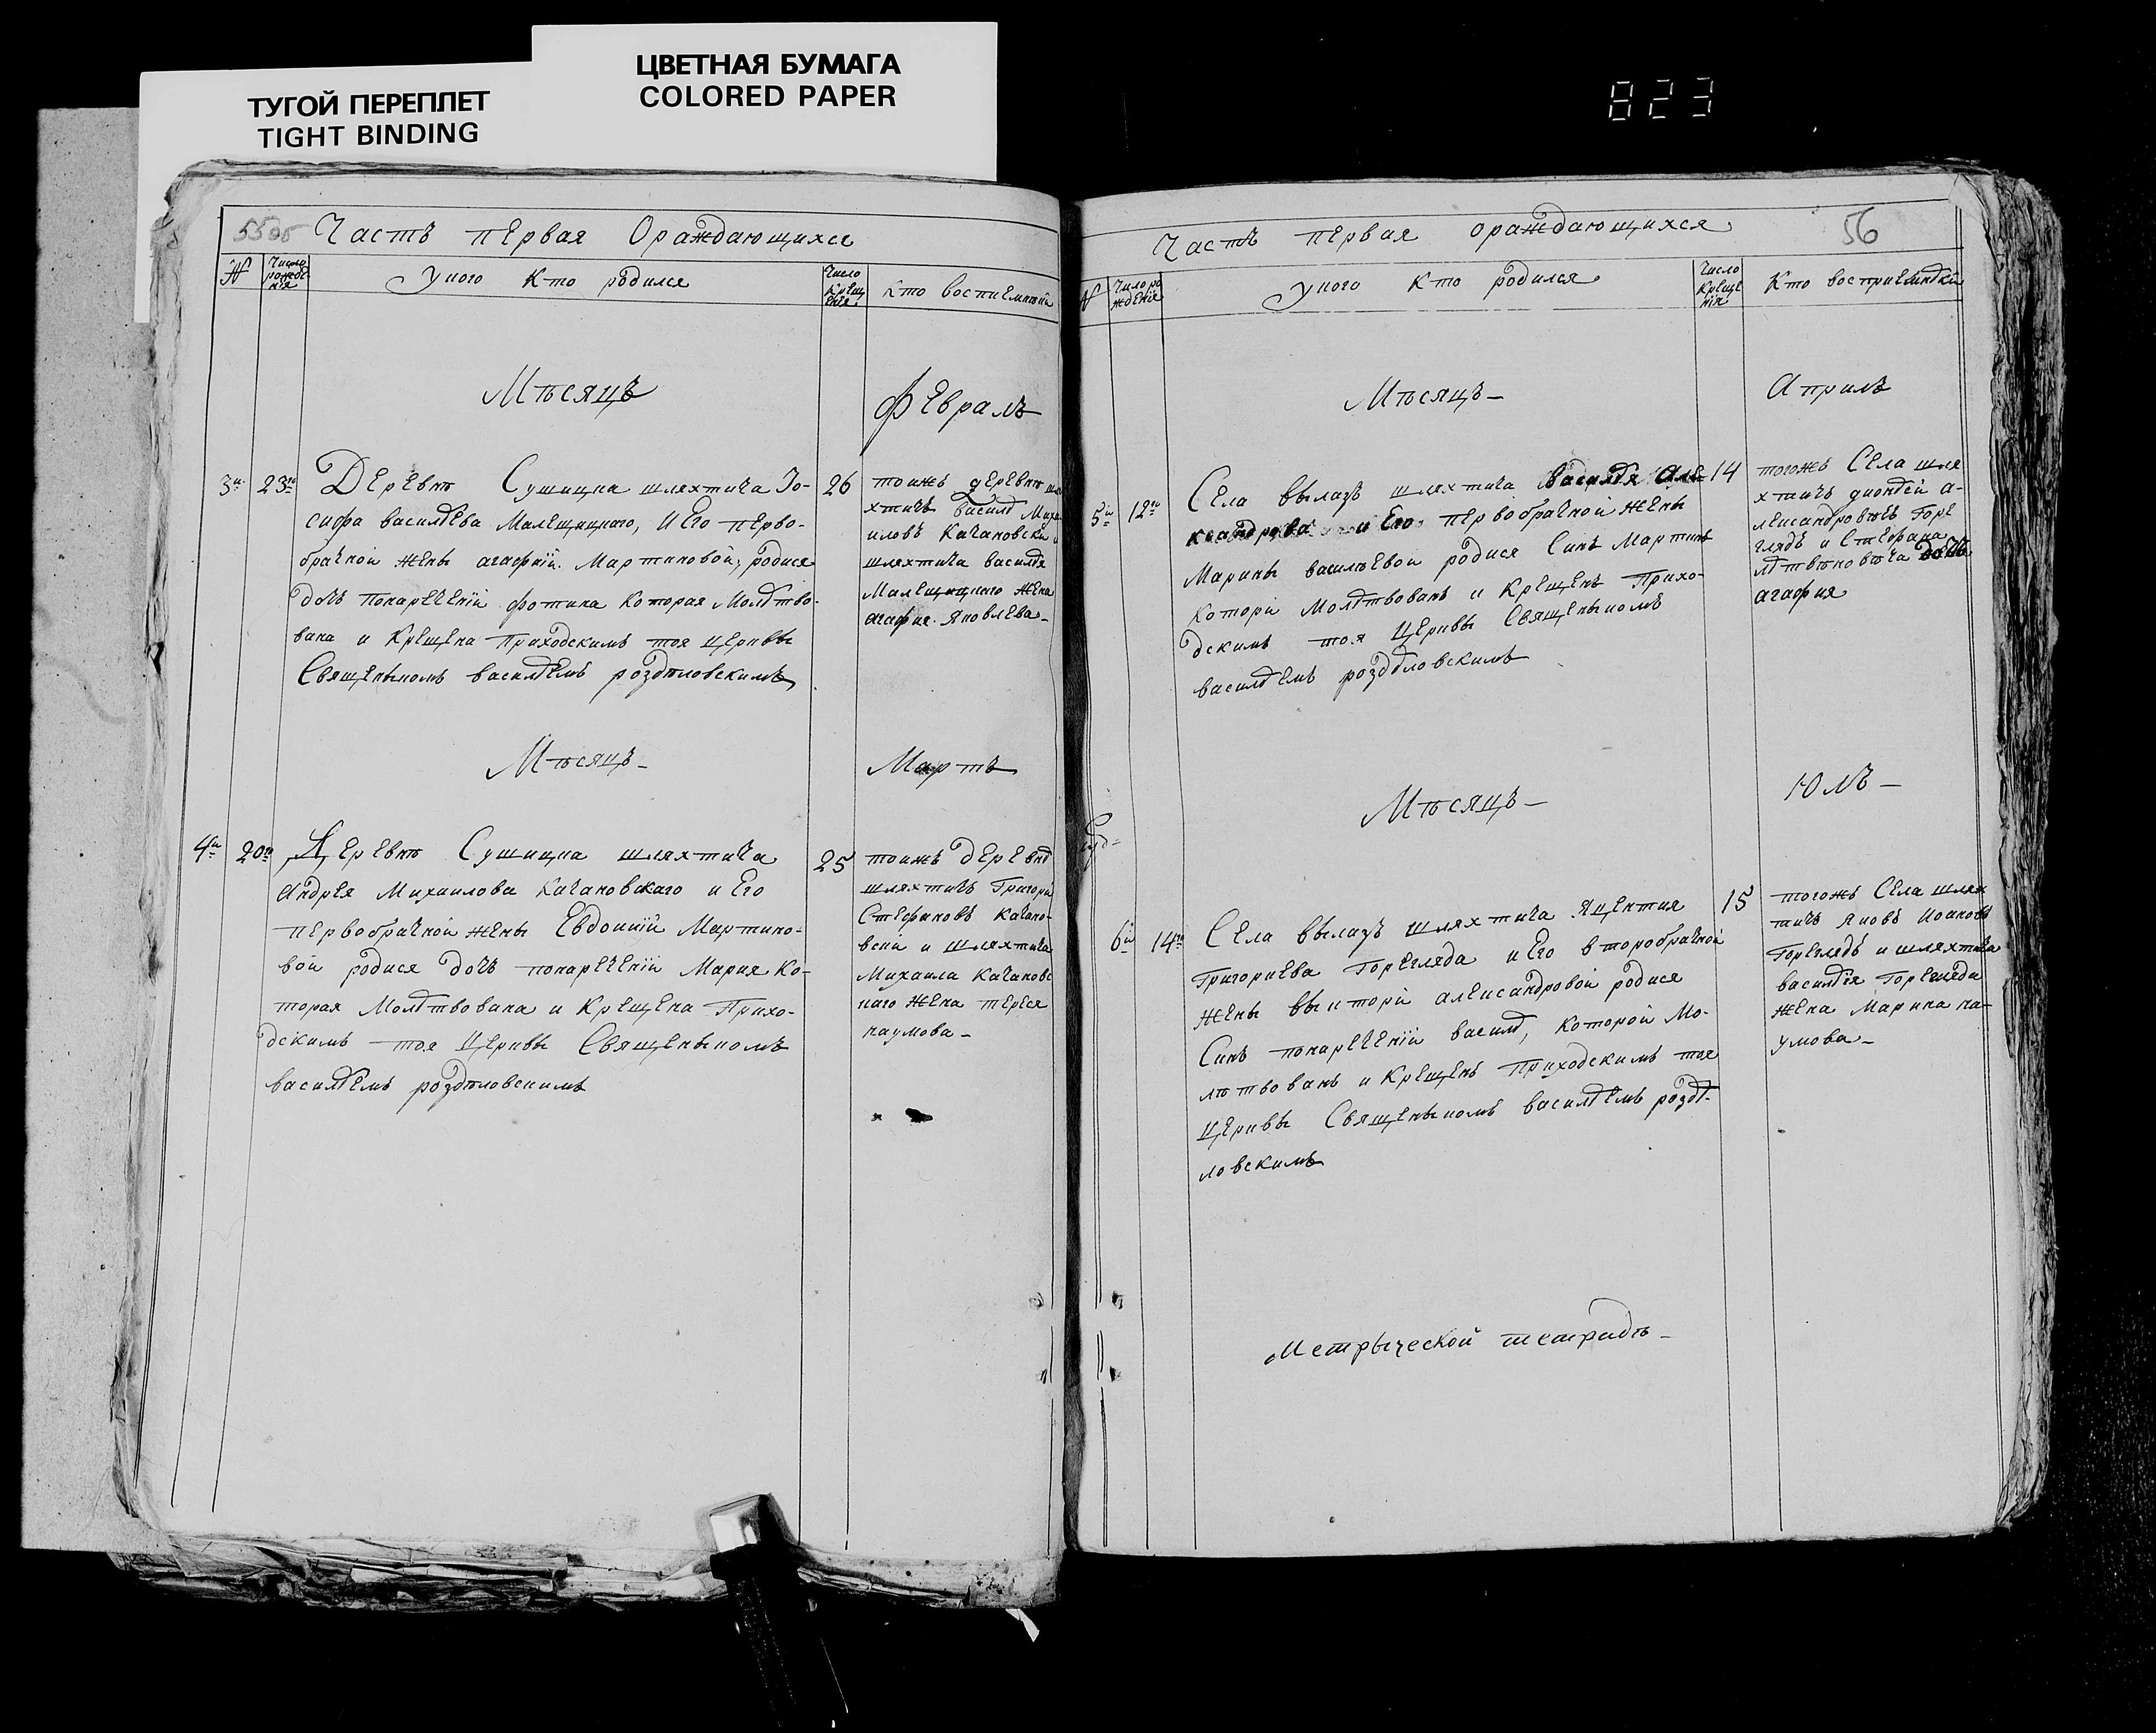 ТУГОЙ ПЕРЕПЛЕТ
TIGHT BINDING
ЦВЕТНАЯ БУМАГА
COLORED PAPER
823
55об Частъ первая Ораждающихся
№ Число рождения У кого кто родился Число Крещения Кто восприемники
Мѣсяцъ Февраль
3й 23го Деревнѣ Сушицка шляхтича Іо-
сифа василіева Малещицкаго, И Его перво-
брачной жены агафніи Мартиновой, родися
дочь понареченіи фотина Которая Молитво-
вана и Крещена Приходскимъ тоя церквы
Священыкомъ василіемъ роздѣловскимъ
26 тоижъ деревнѣ
хтичъ василій
иловъ Качановски
шляхтича василія
Малещицкого жена
агафия Яковлева
Мѣсяцъ Мартъ
4й 20го Деревнѣ Сушицка шляхтича
Андрея Михаилова Качановскаго и Его
первобрачной жены Евдокиіи Мартино-
вой родися дочъ понареченіи Мария Ко-
торая Молитвована и Крещена Прихо-
дскимъ тоя Церквы Священыкомъ
василіемъ роздѣловскимъ
25 тоижъ деревни
шляхтичъ Григори
Стефановъ Качано-
вски и шляхтича
Михаила Качановс
каго жена тереся
наумова
56
Частъ первая ораждающихся
№ Число рождения У кого кто родился Число Крещения Кто восприемники
Мѣсяцъ Априлъ
5й 12го Села вылазъ шляхтича Василія Але-
ксандрова и Его первобрачной жены
Марины василѣевои родися Синъ Мартинъ
которі Молитвованъ и Крещенъ Прихо-
дскимъ тоя Церквы Священыкомъ
василіемъ роздѣловскимъ
14 тогожъ Села шля
хтичъ а-
лександровъ Горе
глядъ и Стефана
агафия
Мѣсяцъ Юлъ
6й 14го Села вылазъ шляхтича Яцентия
Григориева Горегляда и Его второбрачной
жены викторіи александровой родися
Синъ понареченіи василій, которой Мо-
литвованъ и Крещенъ Приходскимъ тоя
Церквы Священыкомъ василіемъ роздѣ-
ловскимъ
15 тогожъ Села шлях
тичъ Яковъ Иоановъ
Гореглядъ и шляхтича
василія Горегляда
жена Марина на-
умова
Метрыческой тетрадѣ